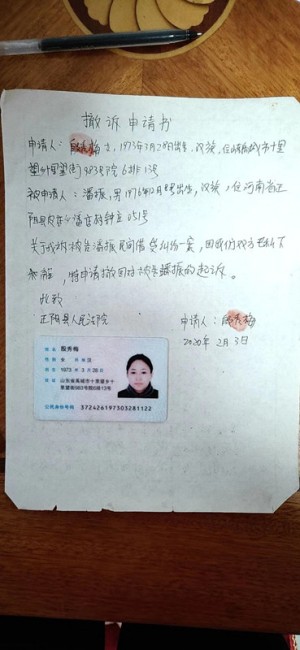 撤诉申请书
申请人：殷秀梅 女，1973年3月28日出生，汉族，住山东省禹城市十里
望乡十里望街983号院6排13号
被申请人：潘振，男1976年12月
出生，汉族，住河南省正
阳县
潘店
051号
关于我诉被告潘振民间借贷纠纷一案，因我们双方私下
和解，特申请撤回对被告潘振的起诉。
此致
正阳县人民法院
申请人：殷秀梅
2020年 2月 3日
姓名 殷秀梅
性别 女 民族 汉
出生 1973 年 3 月 28 日
住址 山东省禹城市十里望乡十
里望街983号院6排13号
公民身份号码 372426197303281122